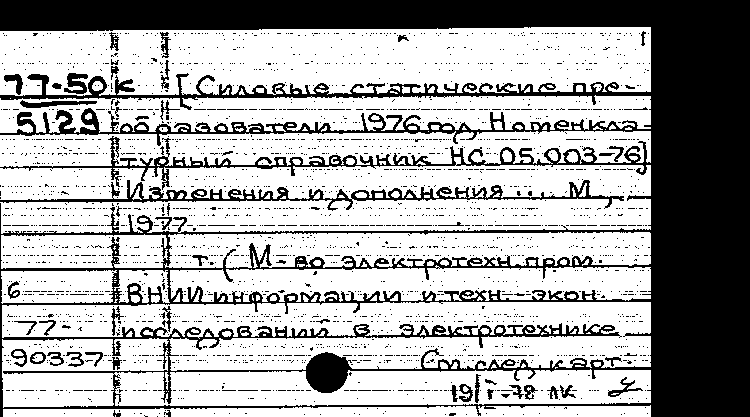 77-50к [Силовые статические пре-
5129 образователи. 1976 год. Номенкла-
турный справочник НС 05.003-76]
Изменения и дополнения ... М.,
1977.
т. (М-во электротехн. пром.
6 ВНИИ информации и техн.-экон.
77- исследований в электротехнике
90337 См. след. карт.
19/I-78 ЛК